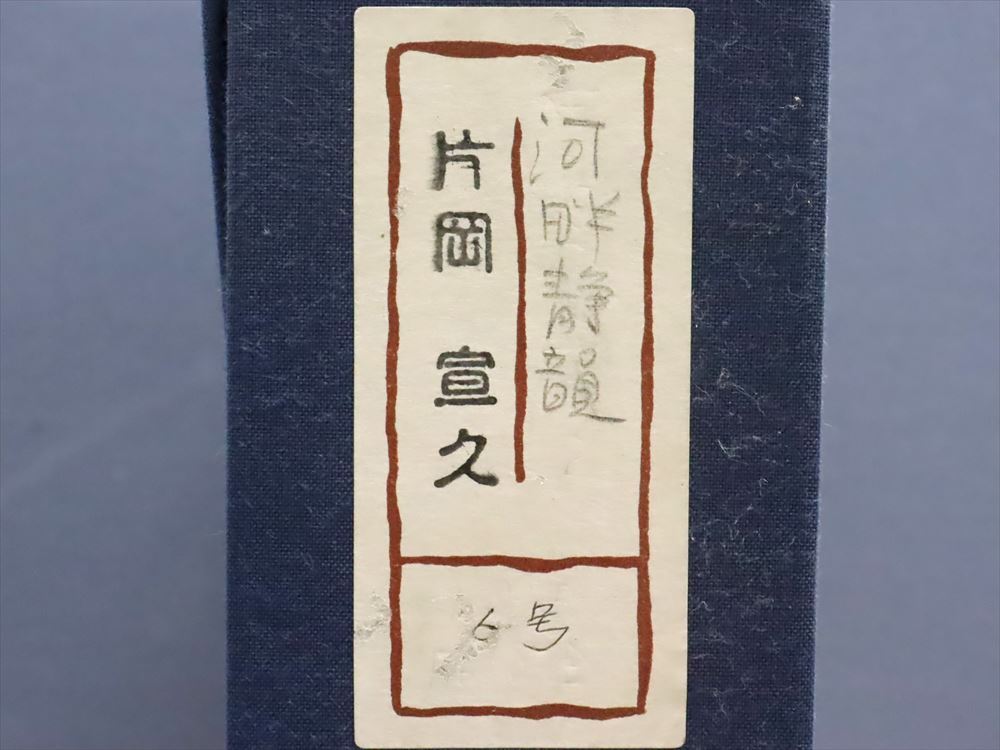 河畔静韻
片岡 宣久
6号